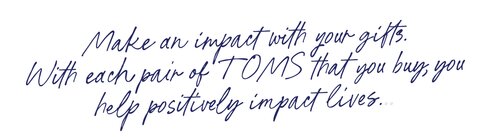 Make an impact with your gifts.
With each pair of TOMS that you buy, you
help positively impact lives...